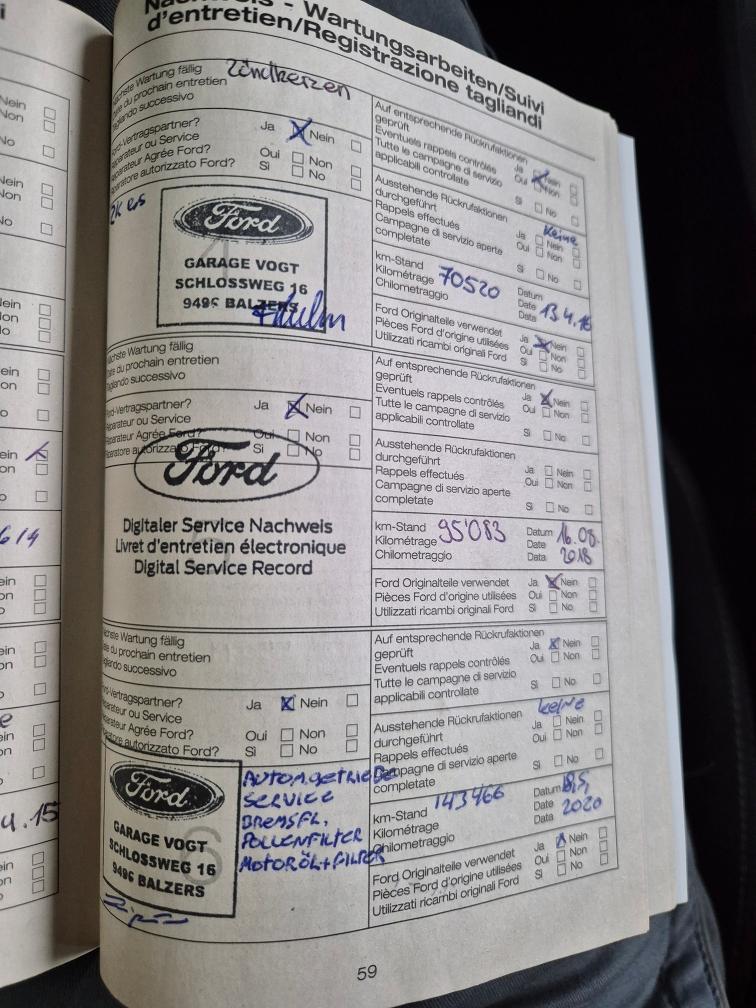 Nachweis - Wartungsarbeiten/Suivi
d'entretien/Registrazione tagliandi
Nächste Wartung fällig Zündkerzen
Date du prochain entretien
Tagliando successivo
Ford-Vertragspartner? Ja Nein
Réparateur ou Service Oui Non
Réparateur Agréé Ford? Si No
Riparatore autorizzato Ford?
Ford
GARAGE VOGT
SCHLOSSWEG 16
9496 BALZERS
Auf entsprechende Rückrufaktionen
geprüft Ja Nein
Eventuels rappels contrôlés Oui Non
Tutte le campagne di servizio
applicabili controllate Si No
Ausstehende Rückrufaktionen keine
durchgeführt Ja Nein
Rappels effectués Oui Non
Campagne di servizio aperte
completate Si No
km-Stand 70520 Datum 13.4.16
Kilométrage Date
Chilometraggio Data
Ford Originalteile verwendet Ja Nein
Pièces Ford d'origine utilisées Oui Non
Utilizzati ricambi originali Ford Si No
Nächste Wartung fällig
Date du prochain entretien
Tagliando successivo
Ford-Vertragspartner? Ja Nein
Réparateur ou Service
Réparateur Agréé Ford? Oui Non
Riparatore autorizzato Ford? Si No
Ford
Digitaler Service Nachweis
Livret d'entretien électronique
Digital Service Record
Auf entsprechende Rückrufaktionen
geprüft Ja Nein
Eventuels rappels contrôlés Oui Non
Tutte le campagne di servizio
applicabili controllate Si No
Ausstehende Rückrufaktionen
durchgeführt Ja Nein
Rappels effectués Oui Non
Campagne di servizio aperte
completate Si No
km-Stand 95'083 Datum 16.08.
Kilométrage Date 2018
Chilometraggio Data
Ford Originalteile verwendet Ja Nein
Pièces Ford d'origine utilisées Oui Non
Utilizzati ricambi originali Ford Si No
Nächste Wartung fällig
Date du prochain entretien
Tagliando successivo
Ford-Vertragspartner? Ja Nein
Réparateur ou Service
Réparateur Agréé Ford? Oui Non
Riparatore autorizzato Ford? Si No
Ford
GARAGE VOGT
SCHLOSSWEG 16
9496 BALZERS
AUTOM.GETRIEBE
SERVICE
BREMSFL.
POLLENFILTER
MOTORÖL+FILTER
Auf entsprechende Rückrufaktionen
geprüft Ja Nein
Eventuels rappels contrôlés Oui Non
Tutte le campagne di servizio
applicabili controllate Si No
Ausstehende Rückrufaktionen keine
durchgeführt Ja Nein
Rappels effectués Oui Non
Campagne di servizio aperte
completate Si No
km-Stand 143466 Datum 18.5.
Kilométrage Date 2020
Chilometraggio Data
Ford Originalteile verwendet Ja Nein
Pièces Ford d'origine utilisées Oui Non
Utilizzati ricambi originali Ford Si No
59